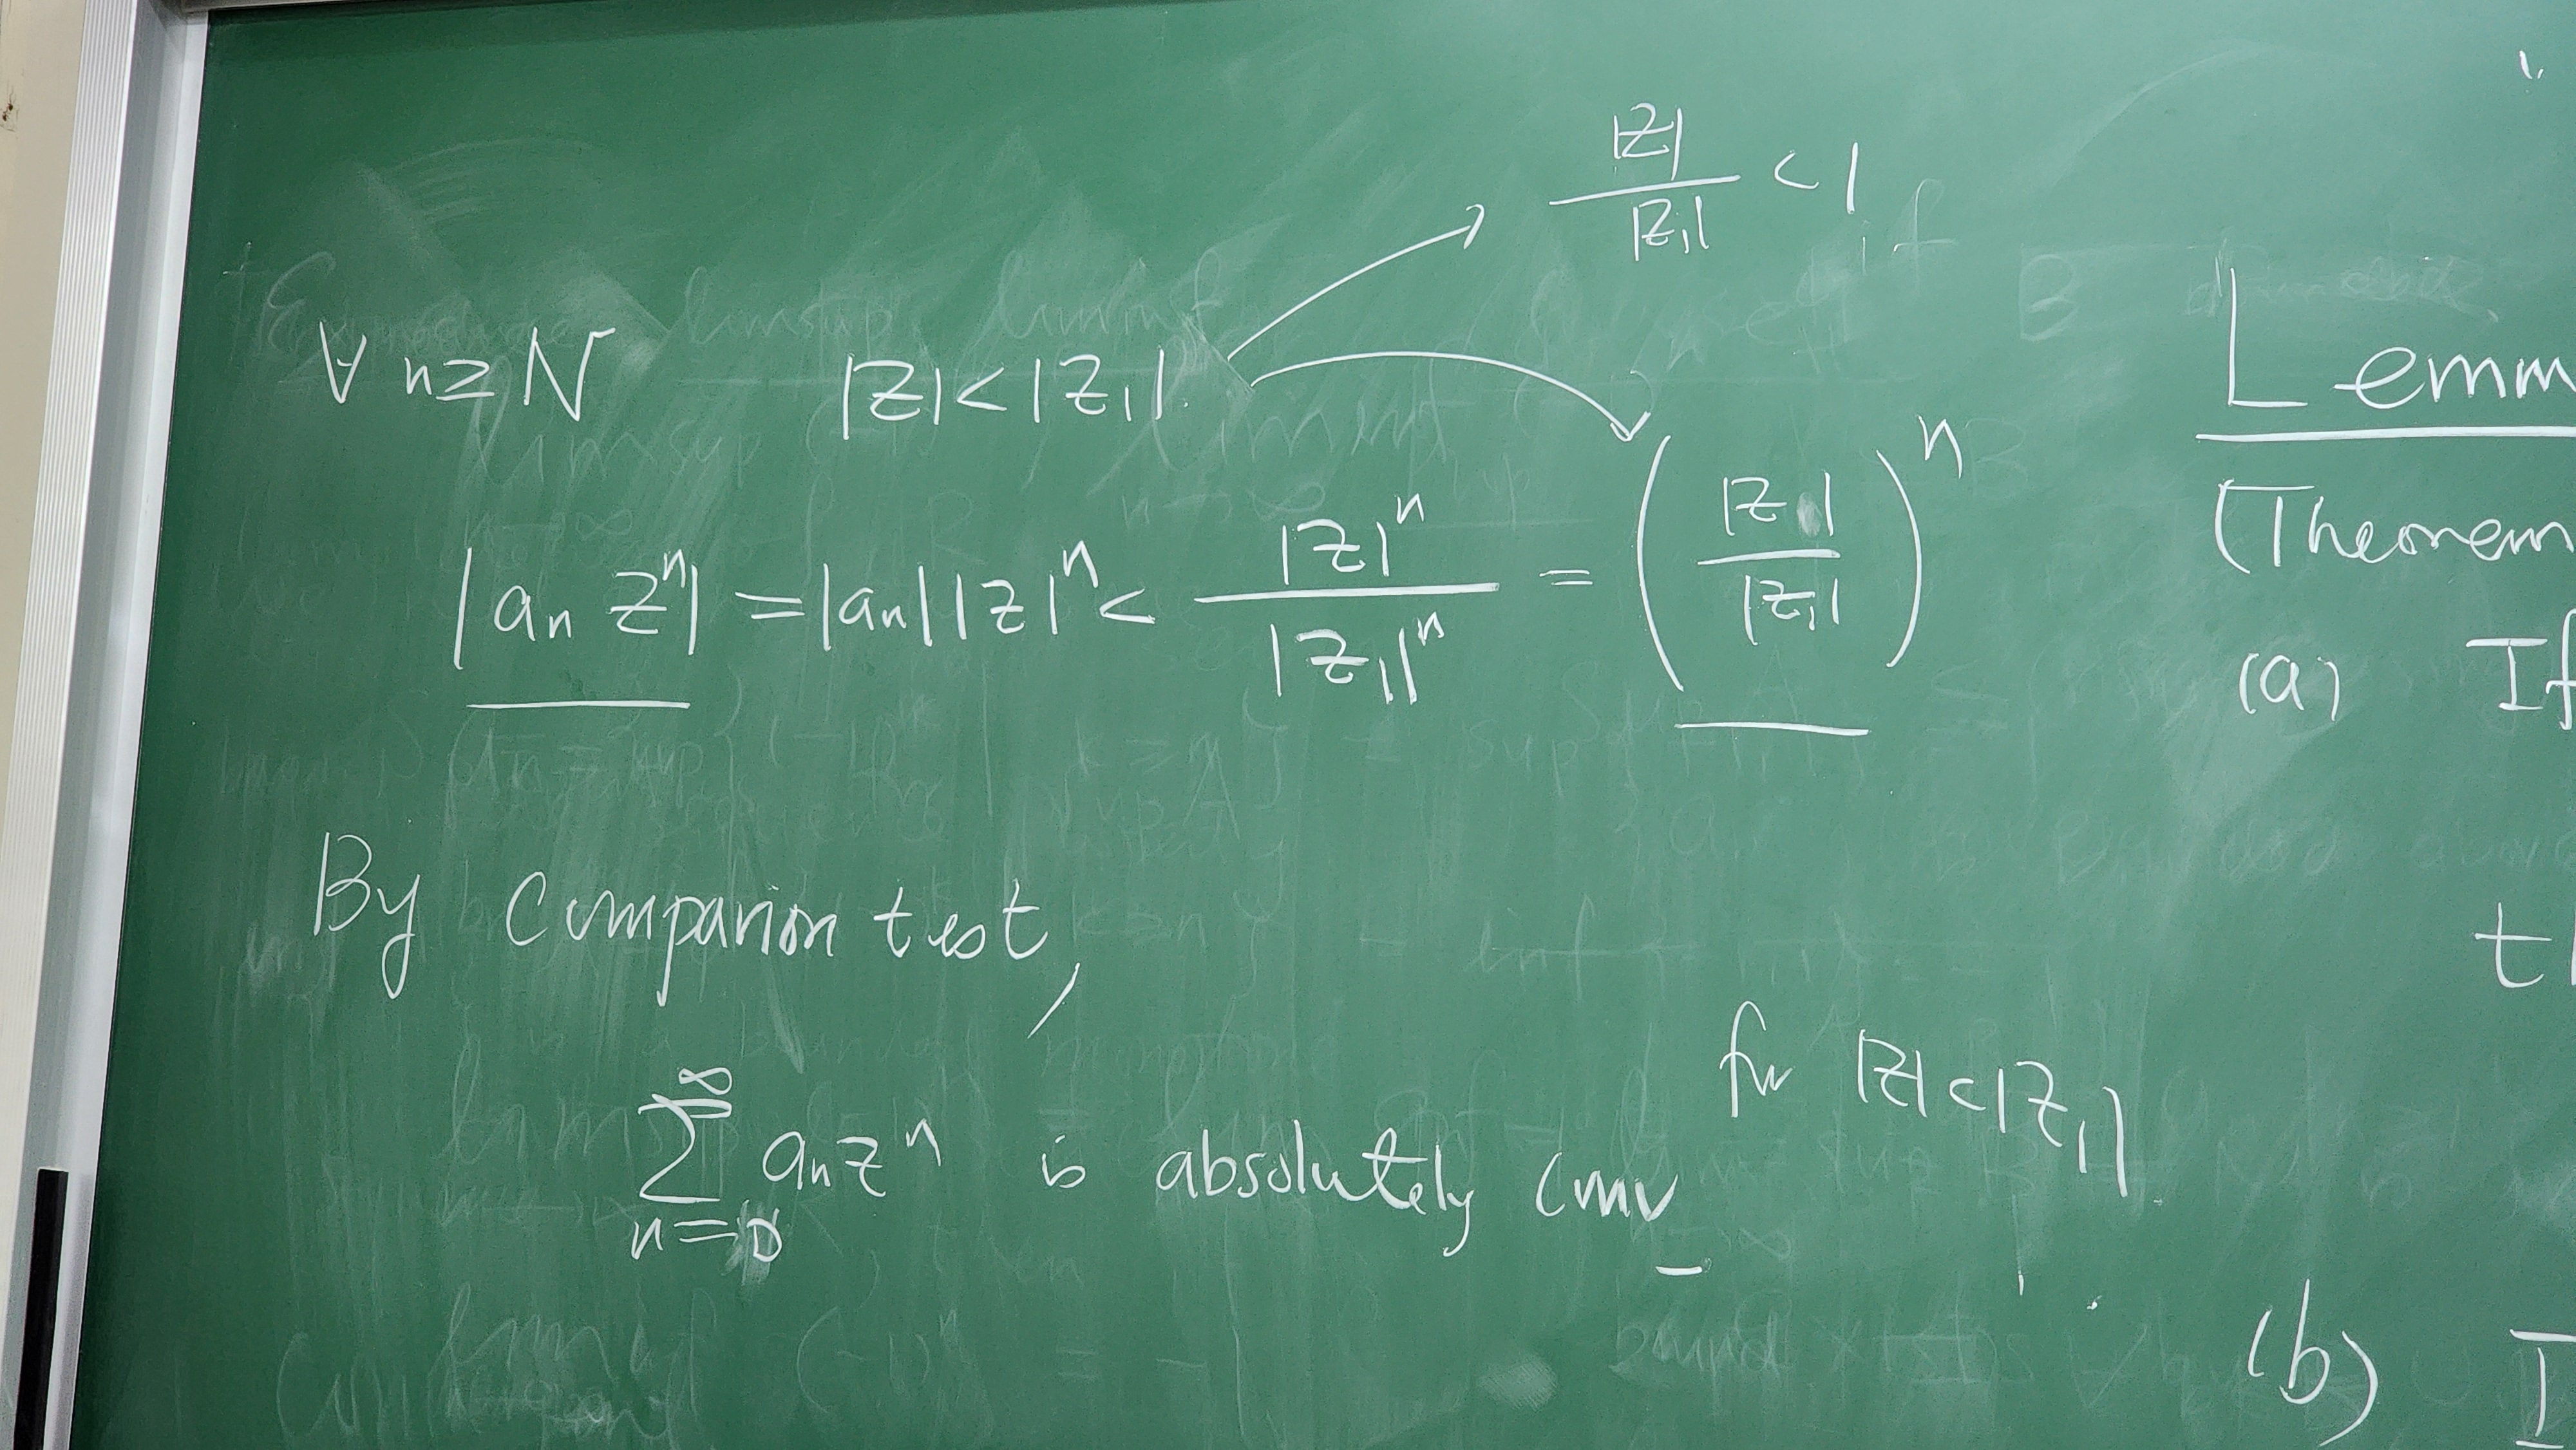 |z| / |z₁| < 1
∀ n ≥ N |z| < |z₁|
|aₙ zⁿ| = |aₙ| |z|ⁿ < |z|ⁿ / |z₁|ⁿ = ( |z| / |z₁| )ⁿ
By comparison test,
∑_{n=0}^{∞} aₙzⁿ is absolutely conv for |z| < |z₁|
Lemm
(Theorem
(a) If
(b)